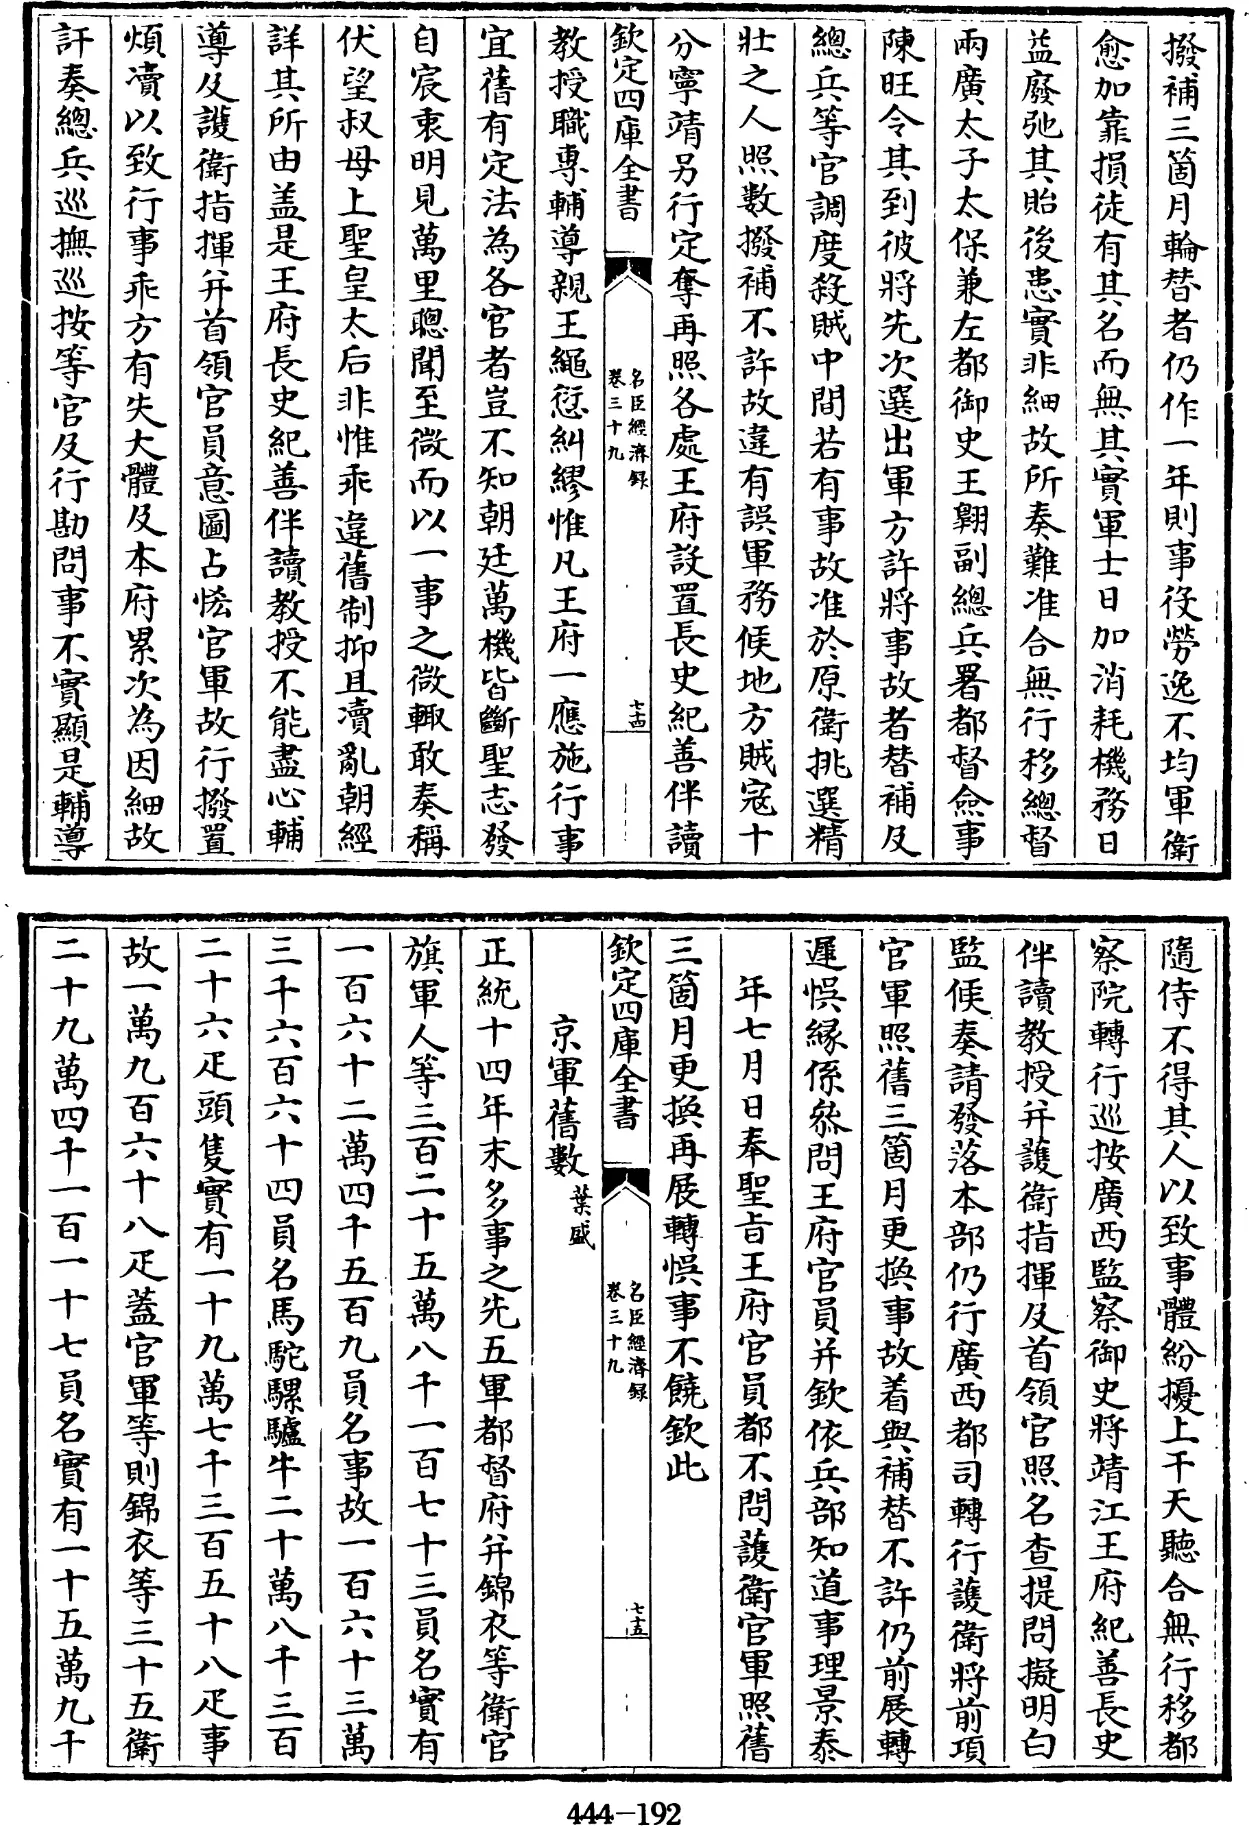 撥補三箇月輪替者仍作一年則事役勞逸不均軍衛
愈加靠損徒有其名而無其實軍士日加消耗機務日
益廢弛其貽後患實非細故所奏難准合無行移總督
兩廣太子太保兼左都御史王翺副總兵署都督僉事
陳旺令其到彼將先次選出軍方許將事故者替補及
總兵等官調度殺賊中間若有事故准於原衛挑選精
壯之人照數撥補不許故違有誤軍務候地方賊寇十
分寧靖另行定奪再照各處王府設置長史紀善伴讀
欽定四庫全書
名臣經濟録
卷三十九
七十四
教授職專輔導親王繩愆糾繆惟凡王府一應施行事
宜舊有定法為各官者豈不知朝廷萬機皆斷聖志發
自宸衷明見萬里聰聞至微而以一事之微輙敢奏稱
伏望叔母上聖皇太后非惟乖違舊制抑且凟亂朝經
詳其所由盖是王府長史紀善伴讀教授不能盡心輔
導及護衛指揮并首領官員意圖占恡官軍故行撥置
煩凟以致行事乖方有失大體及本府累次為因細故
訐奏總兵巡撫巡按等官及行勘問事不實顯是輔導
隨侍不得其人以致事體紛擾上干天聽合無行移都
察院轉行巡按廣西監察御史將靖江王府紀善長史
伴讀教授并護衛指揮及首領官照名查提問擬明白
監候奏請發落本部仍行廣西都司轉行護衛將前項
官軍照舊三箇月更換事故着與補替不許仍前展轉
遲悞緣係叅問王府官員并欽依兵部知道事理景泰
年七月日奉聖旨王府官員都不問護衛官軍照舊
三箇月更換再展轉悞事不饒欽此
欽定四庫全書
名臣經濟録
卷三十九
七十五
京軍舊數葉盛
正統十四年末多事之先五軍都督府并錦衣等衛官
旗軍人等三百二十五萬八千一百七十三員名實有
一百六十二萬四千五百九員名事故一百六十三萬
三千六百六十四員名馬駝騾驢牛二十萬八千三百
二十六疋頭隻實有一十九萬七千三百五十八疋事
故一萬九百六十八疋葢官軍等則錦衣等三十五衛
二十九萬四千一百一十七員名實有一十五萬九千
444-192